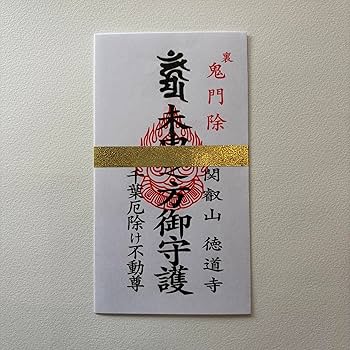 裏
鬼門除
関叡山 徳道寺
未申之方御守護
千葉厄除け不動尊